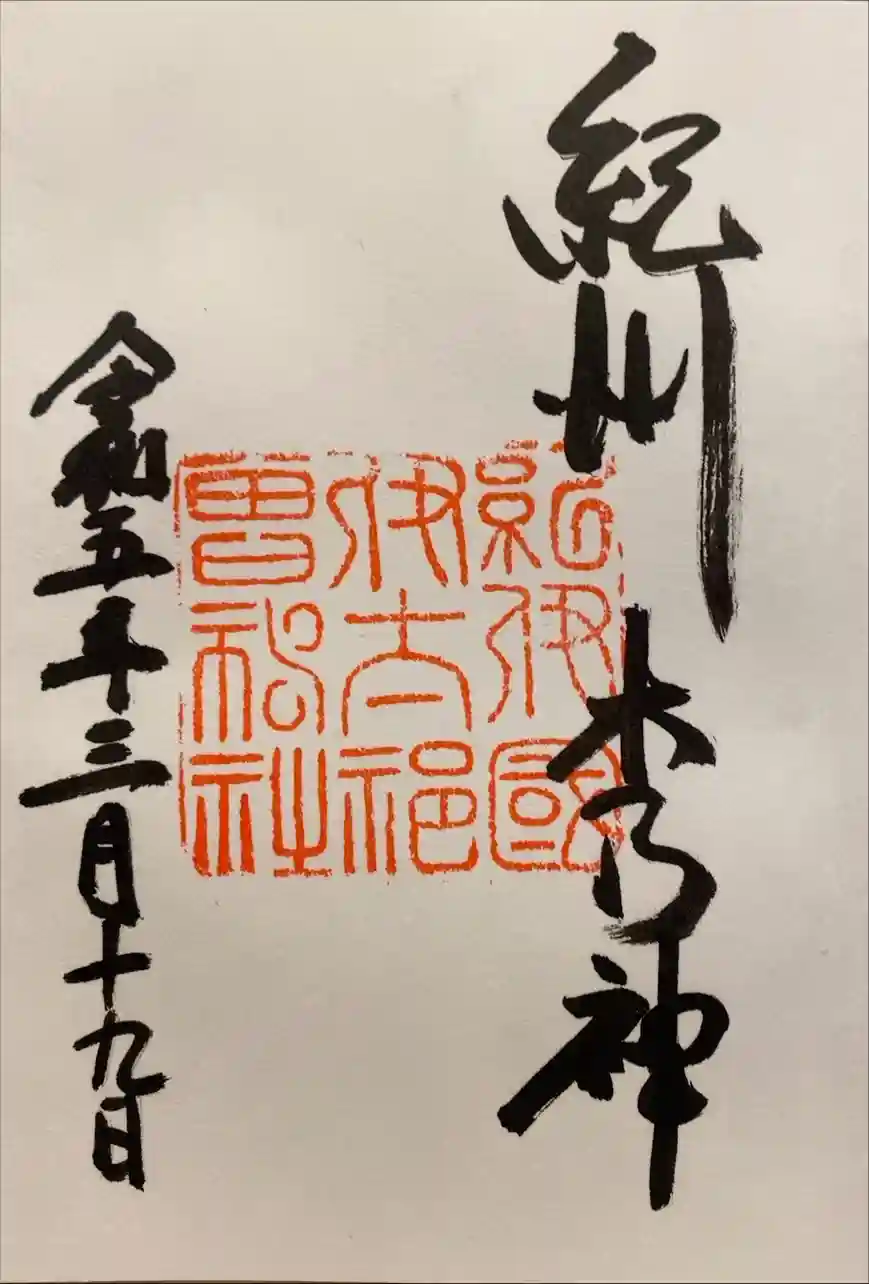 紀州 木乃神
紀伊國
伊太祁
曽神社
令和五年三月十九日